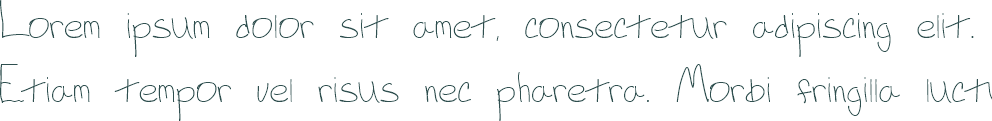 Lorem ipsum dolor sit amet, consectetur adipiscing elit.
Etiam tempor vel risus nec pharetra. Morbi fringilla luctu